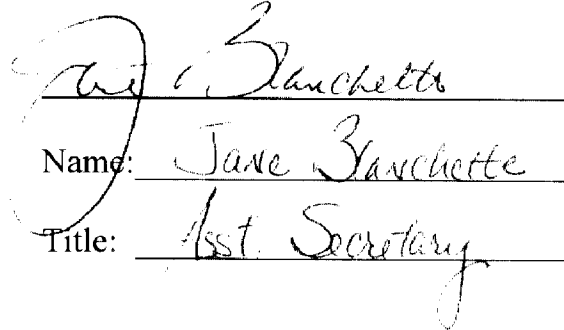 Jane Blanchette
Name: Jane Blanchette
Title: Asst. Secretary